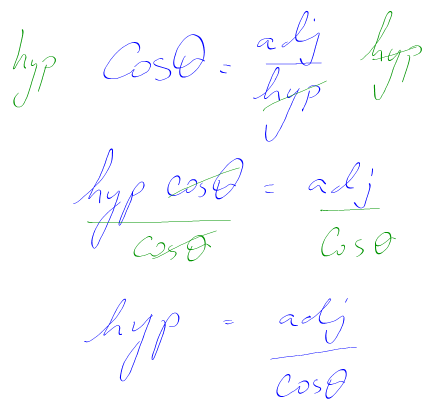 hyp cosθ = adj/hyp hyp
hyp cosθ/cosθ = adj/cosθ
hyp = adj/cosθ